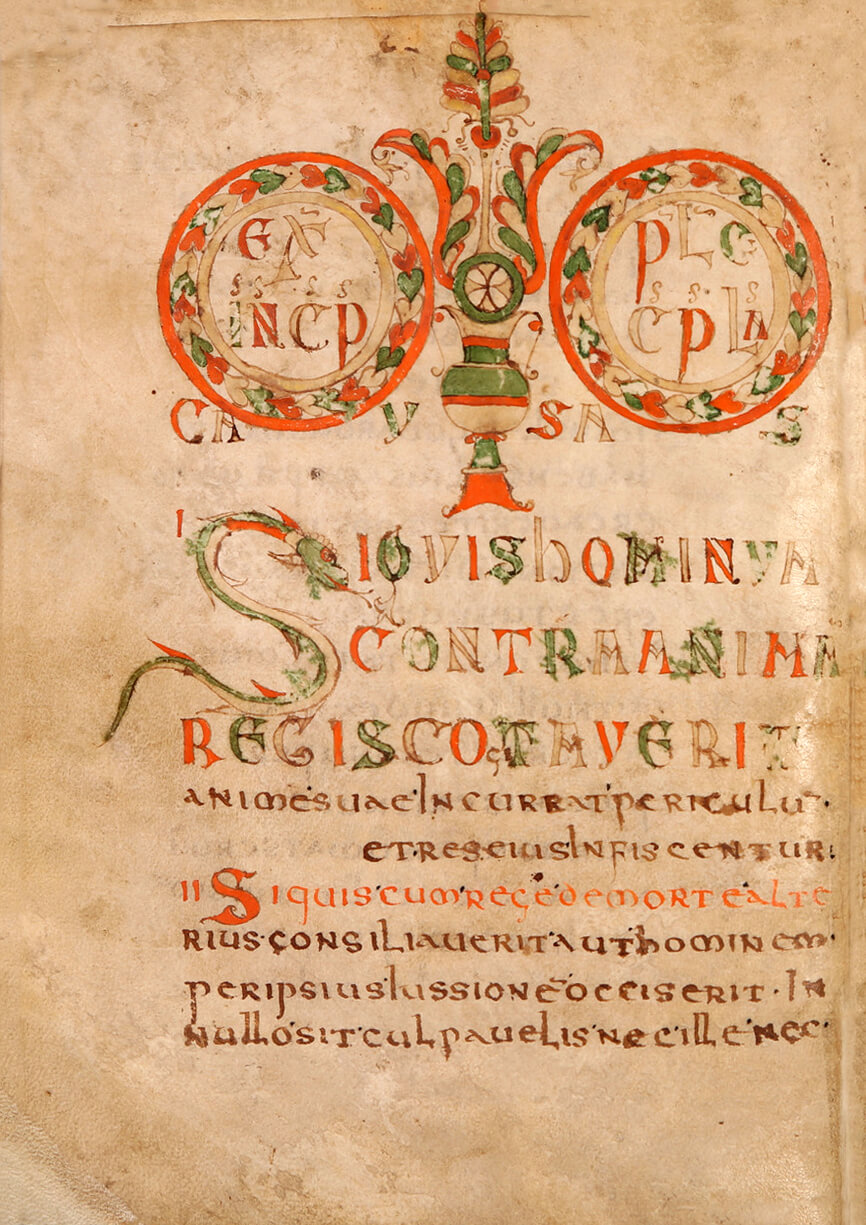 EX̄ A PLE
INCP CPLA
CAVSAS
I SI QVIS HOMINVM
CONTRA ANIMA
REGIS COgTAVERIT
anime suae incurrat periculū·
et res eius infiscentur:
II Si quis cum rege de morte alte
rius·consiliauerit aut hominem·
per ipsius iussionē occiserit·in
nullo sit culpauelis nec ille nec·